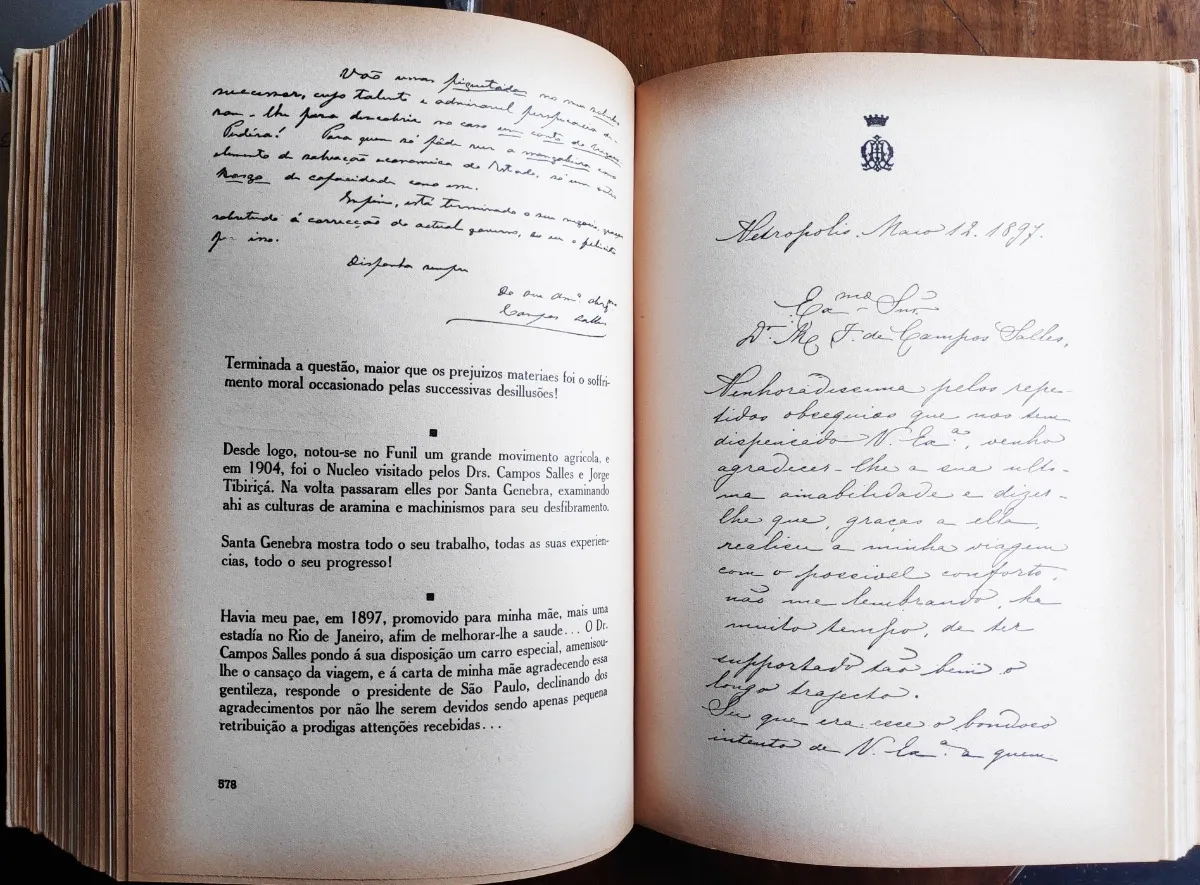 Vão umas piquetadas no seu
successor, cujo talento e admiravel perspicacia
ram-lhe para descobrir no caso um conto do vigario
Pudéra! Para quem só póde ver a mangabeira como
elemento de salvação economica do Estado, só um
de capacidade como esse.
Emfim, está terminado o seu negocio, graças
sobretudo á correcção do actual governo, eu o felicito
por isso.
Disponha sempre
De seu am.º obrg.º
Campos Salles
Terminada a questão, maior que os prejuizos materiaes foi o soffri-
mento moral occasionado pelas successivas desillusões!
Desde logo, notou-se no Funil um grande movimento agricola, e
em 1904, foi o Nucleo visitado pelos Drs. Campos Salles e Jorge
Tibiriçá. Na volta passaram elles por Santa Genebra, examinando
ahi as culturas de aramina e machinismos para seu desfibramento.
Santa Genebra mostra todo o seu trabalho, todas as suas experien-
cias, todo o seu progresso!
Havia meu pae, em 1897, promovido para minha mãe, mais uma
estadía no Rio de Janeiro, afim de melhorar-lhe a saude... O Dr.
Campos Salles pondo á sua disposição um carro especial, amenisou-
lhe o cansaço da viagem, e á carta de minha mãe agradecendo essa
gentileza, responde o presidente de São Paulo, declinando dos
agradecimentos por não lhe serem devidos sendo apenas pequena
retribuição a prodigas attenções recebidas...
578
Petropolis. Maio 12. 1897.
Ex.mo Snr.
Dr. M. F. de Campos Salles,
Penhoradissima pelos repe-
tidos obsequios que nos tem
dispençado V. Ex.a, venho
agradecer-lhe a sua ulti-
ma amabilidade e dizer-
lhe que, graças a ella,
realisei a minha viagem
com o possivel conforto,
não me lembrando, ha
muito tempo, de ter
supportado tão bem o
longo trajecto.
Sei que era esse o bondoso
intento de V. Ex.a a quem